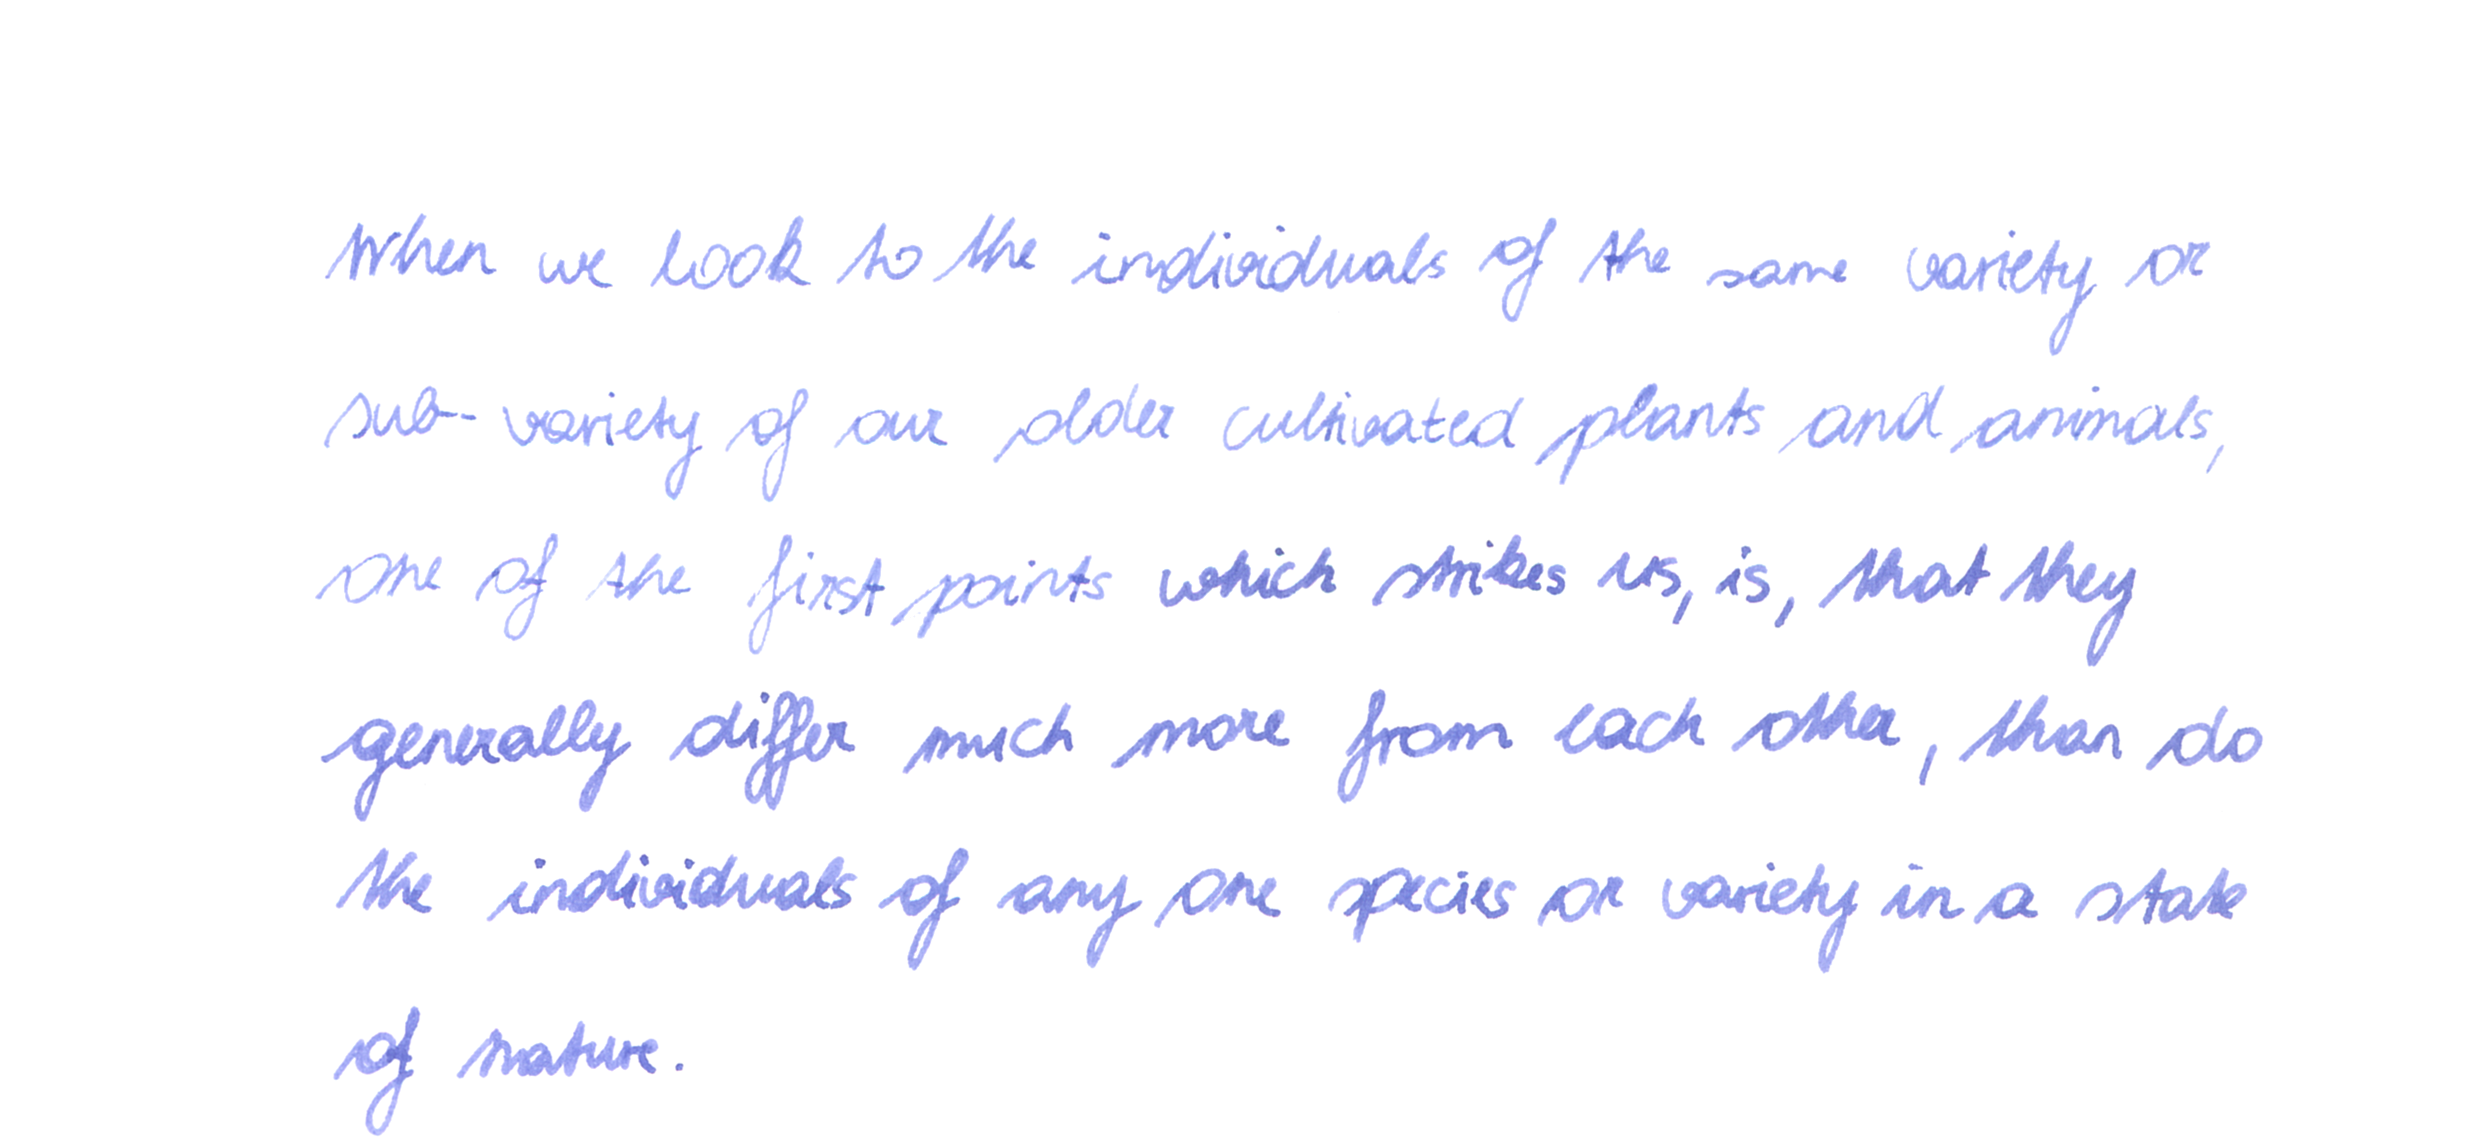 When we look to the individuals of the same variety or
sub-variety of our older cultivated plants and animals,
one of the first points which strikes us, is, that they
generally differ much more from each other, than do
the individuals of any one species or variety in a state
of nature.